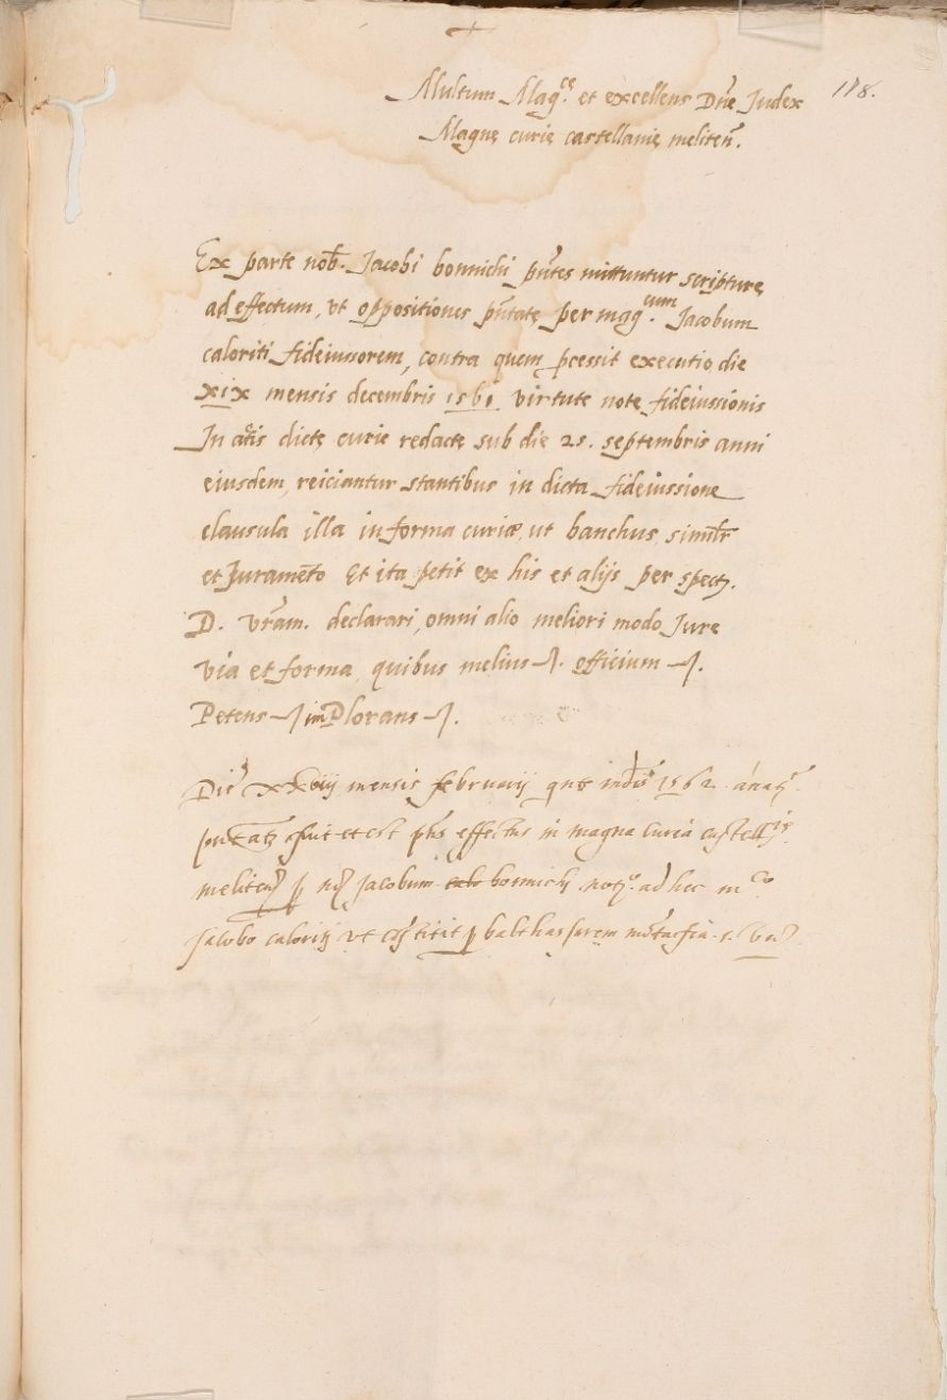 118.
Multum Mag.ce et excellens Dn̄e Judex
Magnę curię castellanię meliteñ.
Ex parte nob̄. Jacobi bonnichi pn̄tes mittuntur scripturę
ad effectum, ut oppositiones pn̄tatę per mag.cum Jacobum
caloriti fideiussorem, contra quem pcessit executio die
xix mensis decembris 1561. virtute notę fideiussionis
In actis dictę curie redactę sub die 25. septembris anni
eiusdem, reiciantur stantibus in dicta fideiussione
clausula illa in forma curiæ, ut banchus simlr̄
et Juramēto Et ita petit ex his et alijs per spect.
D. vr̄am. declarari, omni alio meliori modo Jure
via et forma, quibus melius officium
Petens imPlorans
Die xxviij mensis februarij qnte indis 1562
fuit et est effectus in magna curia
Jacobum bonnichi not. ad hec
Jacobo ut balthassarem